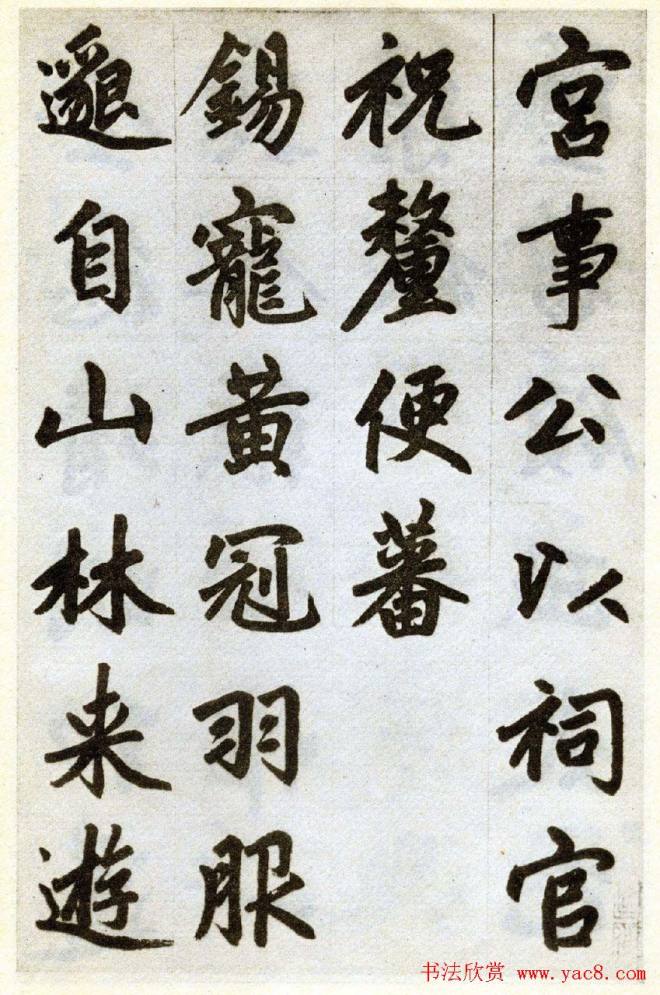 宮事公以祠官
祝釐便蕃
錫寵黃冠羽服
邈自山林来遊
书法欣赏 www.yac8.com